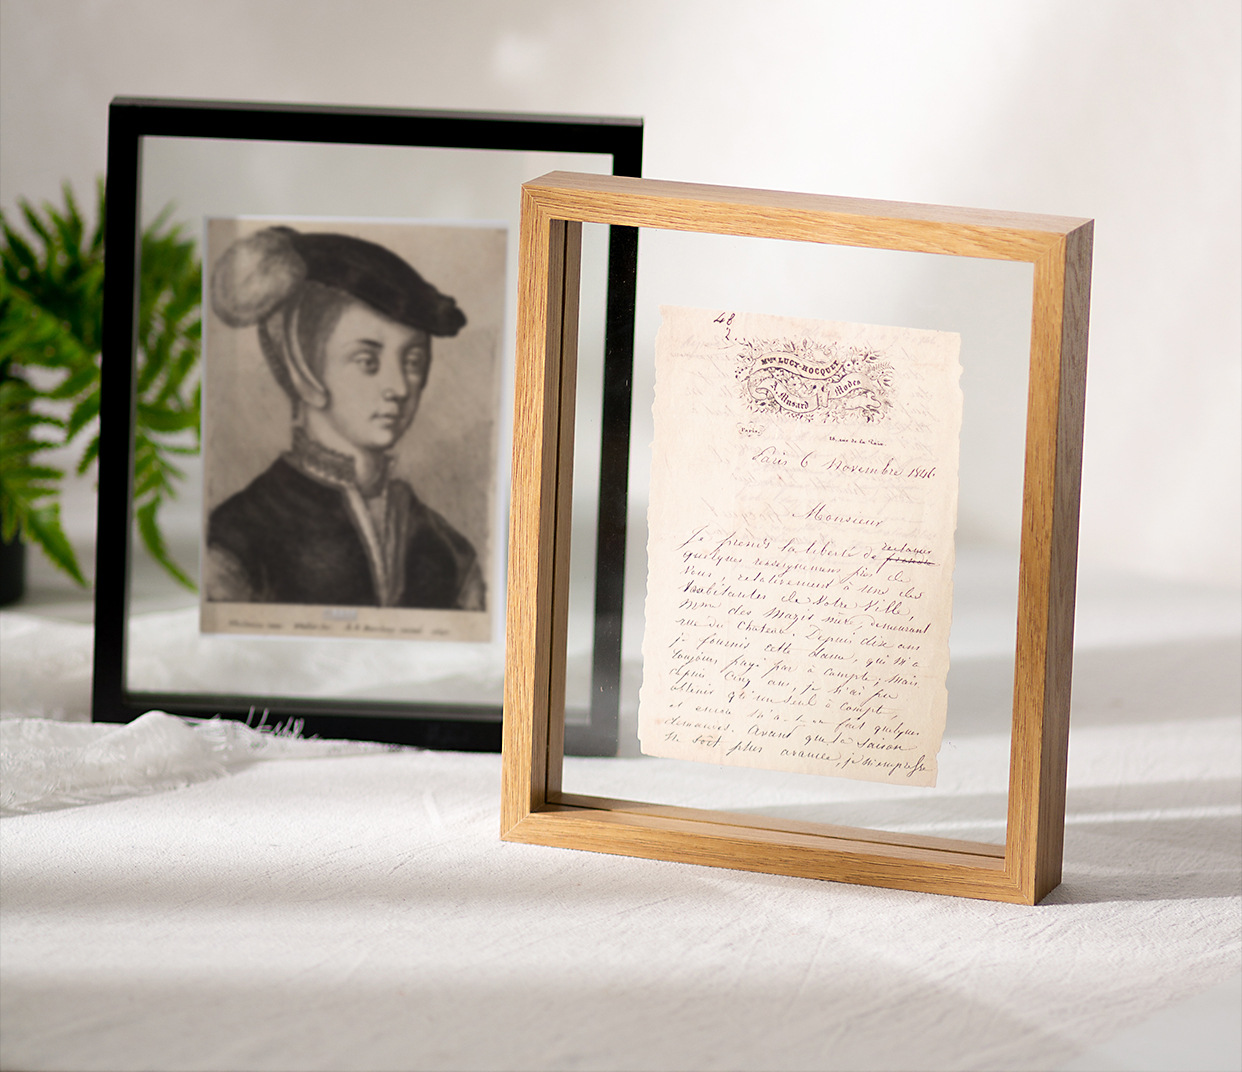 48
2.
Mme LUCY-HOCQUET
A. Musard Modes
Paris,
Paris 6 Novembre 1846
Monsieur
Je prends la liberté de
quelques renseignemens près de
Vous, relativement à une des
habitantes de Notre Ville,
Mme des
rue du Chateau. Depuis dix ans
je fournis cette dame, qui m'a
toujours payé par à compte; mais
depuis cinq ans, je n'ai pu
obtenir qu'un seul à compte,
et encore m'a-t-on fait quelques
demandes. Avant que la saison
ne soit plus avancée, je m'empresse